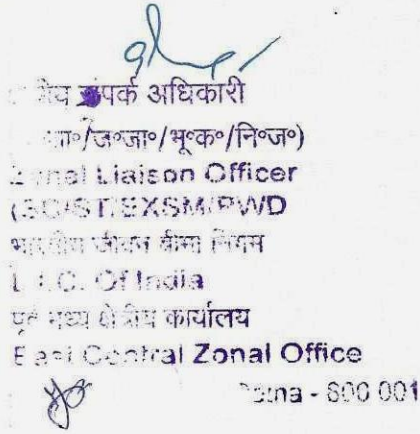 संपर्क अधिकारी
जा०/ज०जा०/भू०क०/नि०ज०)
Zonal Liaison Officer
(SC/ST/EXSM/PWD
भारतीय जीवन बीमा निगम
L.I.C. Of India
पूर्व मध्य क्षेत्रीय कार्यालय
East Central Zonal Office
Patna - 800 001